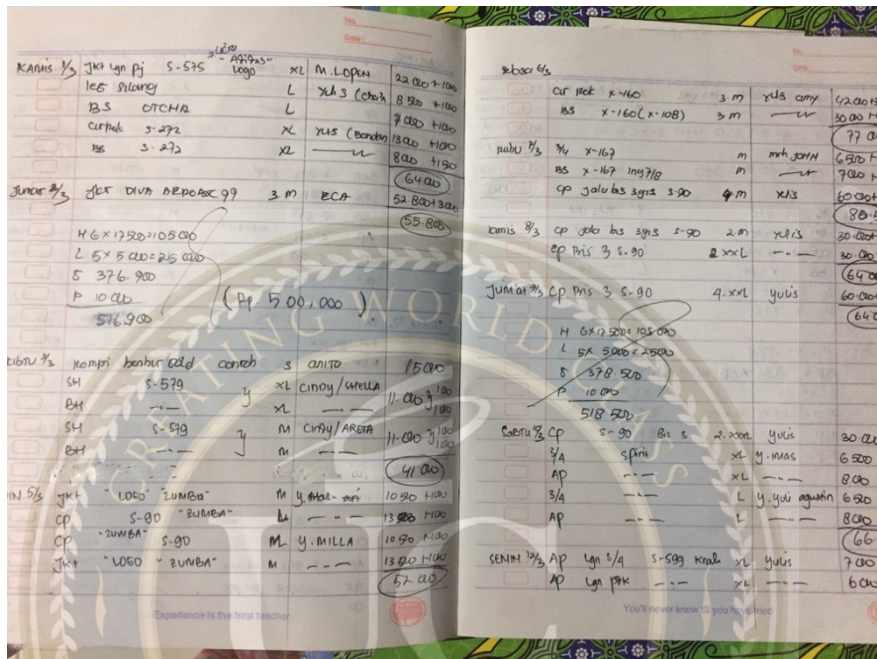 KAMIS 1/3 JKt lgn pj S-575 "Adidas" Logo XL M. LOPEN 22.000 + 1000
Les silang L yuls (Chaik 8500 + 1000
BS OTCHA L 7000 + 1000
Cut pdk S-272 XL yuls (Bandan 13000 + 1000
BS S-272 XL 8000 + 1000
64000
Jumat 2/3 JKt DIVA AEROBIC 99 3 M ECA 52.800 + 3000
55.800
H 6 x 17500 = 105 000
L 5 x 5000 = 25 000
S 376.900
P 10 000
516 900
(Rp 500.000).
SABTU 3/3 Rompi contoh S ANITA 15000
SH S-579 XL CINDY/SHELLA
BH -.- y XL -.- 11.000 } 100 100
SH S-579 M CINDY/ARETA
BH -.- y M -.- 11.000 } 100 100
41 000
5/3 JKt "LOGO ZUMBA" M 10500 + 1000
CP S-90 "ZUMBA" -.- 13500 + 1000
CP "ZUMBA" S-90 M y. MILLA 10500 + 1000
JKt "LOGO ZUMBA" M -.- 13500 + 1000
52 000
Experience is the best teacher
6/3
Cut pdk X-160 3.M yuls amy 42000+
BS X-160 (X-108) 3 M 30 000 +
77 0
Rabu 7/3 3/4 X-167 M mrh JOHN 6500 +
BS X-167 ing 7/8 M 7000 +
CP jala bis 3grs S-90 4 M yulis 60 000+
Kamis 8/3 CP jala bis 3grs S-90 2.M yulis 30.000+
CP Bis 3 S-90 2 XXL -.- 30.000
(64 0
JUM'AT 9/3 CP Bis 3 S-90 4.XXL yulis 60.000+
(64 0
H 6x17 500 = 105 000
L 5x 5000 = 25000
S 378 500
P 10 000
518 500
SABTU 10/3 CP S-90 Bis 3 2.XXXL yulis 30 000
3/4 Spirit XL y.mas 6500
AP -.- XL -.- 8000
3/4 -.- L y.yuli agustin 6500
AP -.- L -.- 8000
(66
SENIN 12/3 AP lgn 3/4 S-599 Krah XL yulis 7000
AP lgn pdk -.- XL -.- 6000
You'll never know till you have tried
CREATING WORLD CLASS
UC